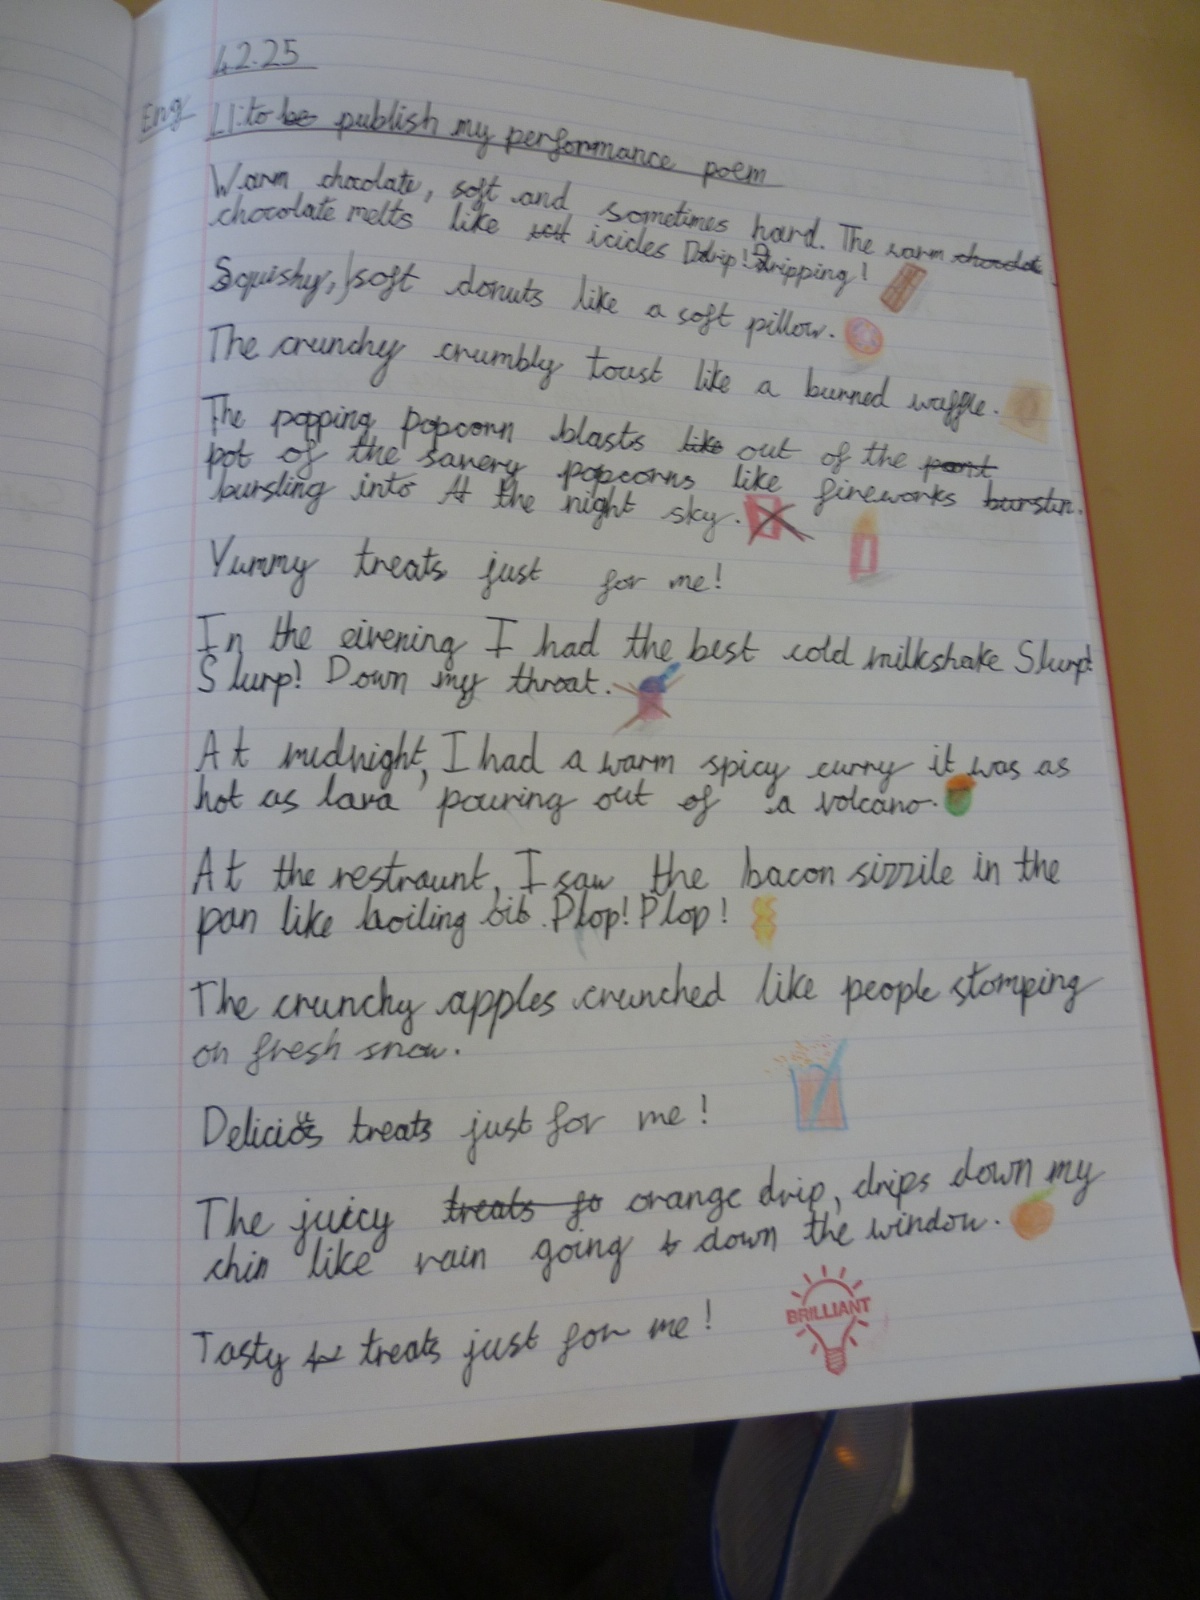 4.2.25
Eng
LI: to be publish my performance poem
Warm chocolate, soft and sometimes hard. The warm chocolate
chocolate melts like icicles Drip! Dripping!
Squishy, soft donuts like a soft pillow.
The crunchy crumbly toast like a burned waffle.
The popping popcorn blasts like out of the
pot of the savery popcorns like fireworks burstin
bursling into the night sky.
Yummy treats just for me!
In the eivening I had the best cold milkshake Slurp!
Slurp! Down my throat.
At midnight, I had a warm spicy curry it was as
hot as lava pouring out of a volcano.
At the restraunt, I saw the bacon sizzile in the
pan like boiling Plop! Plop!
The crunchy apples crunched like people stomping
on fresh snow.
Delicious treats just for me!
The juiccy treats fo orange drip, drips down my
chin like rain going down the window.
BRILLIANT
Tasty treats just for me!